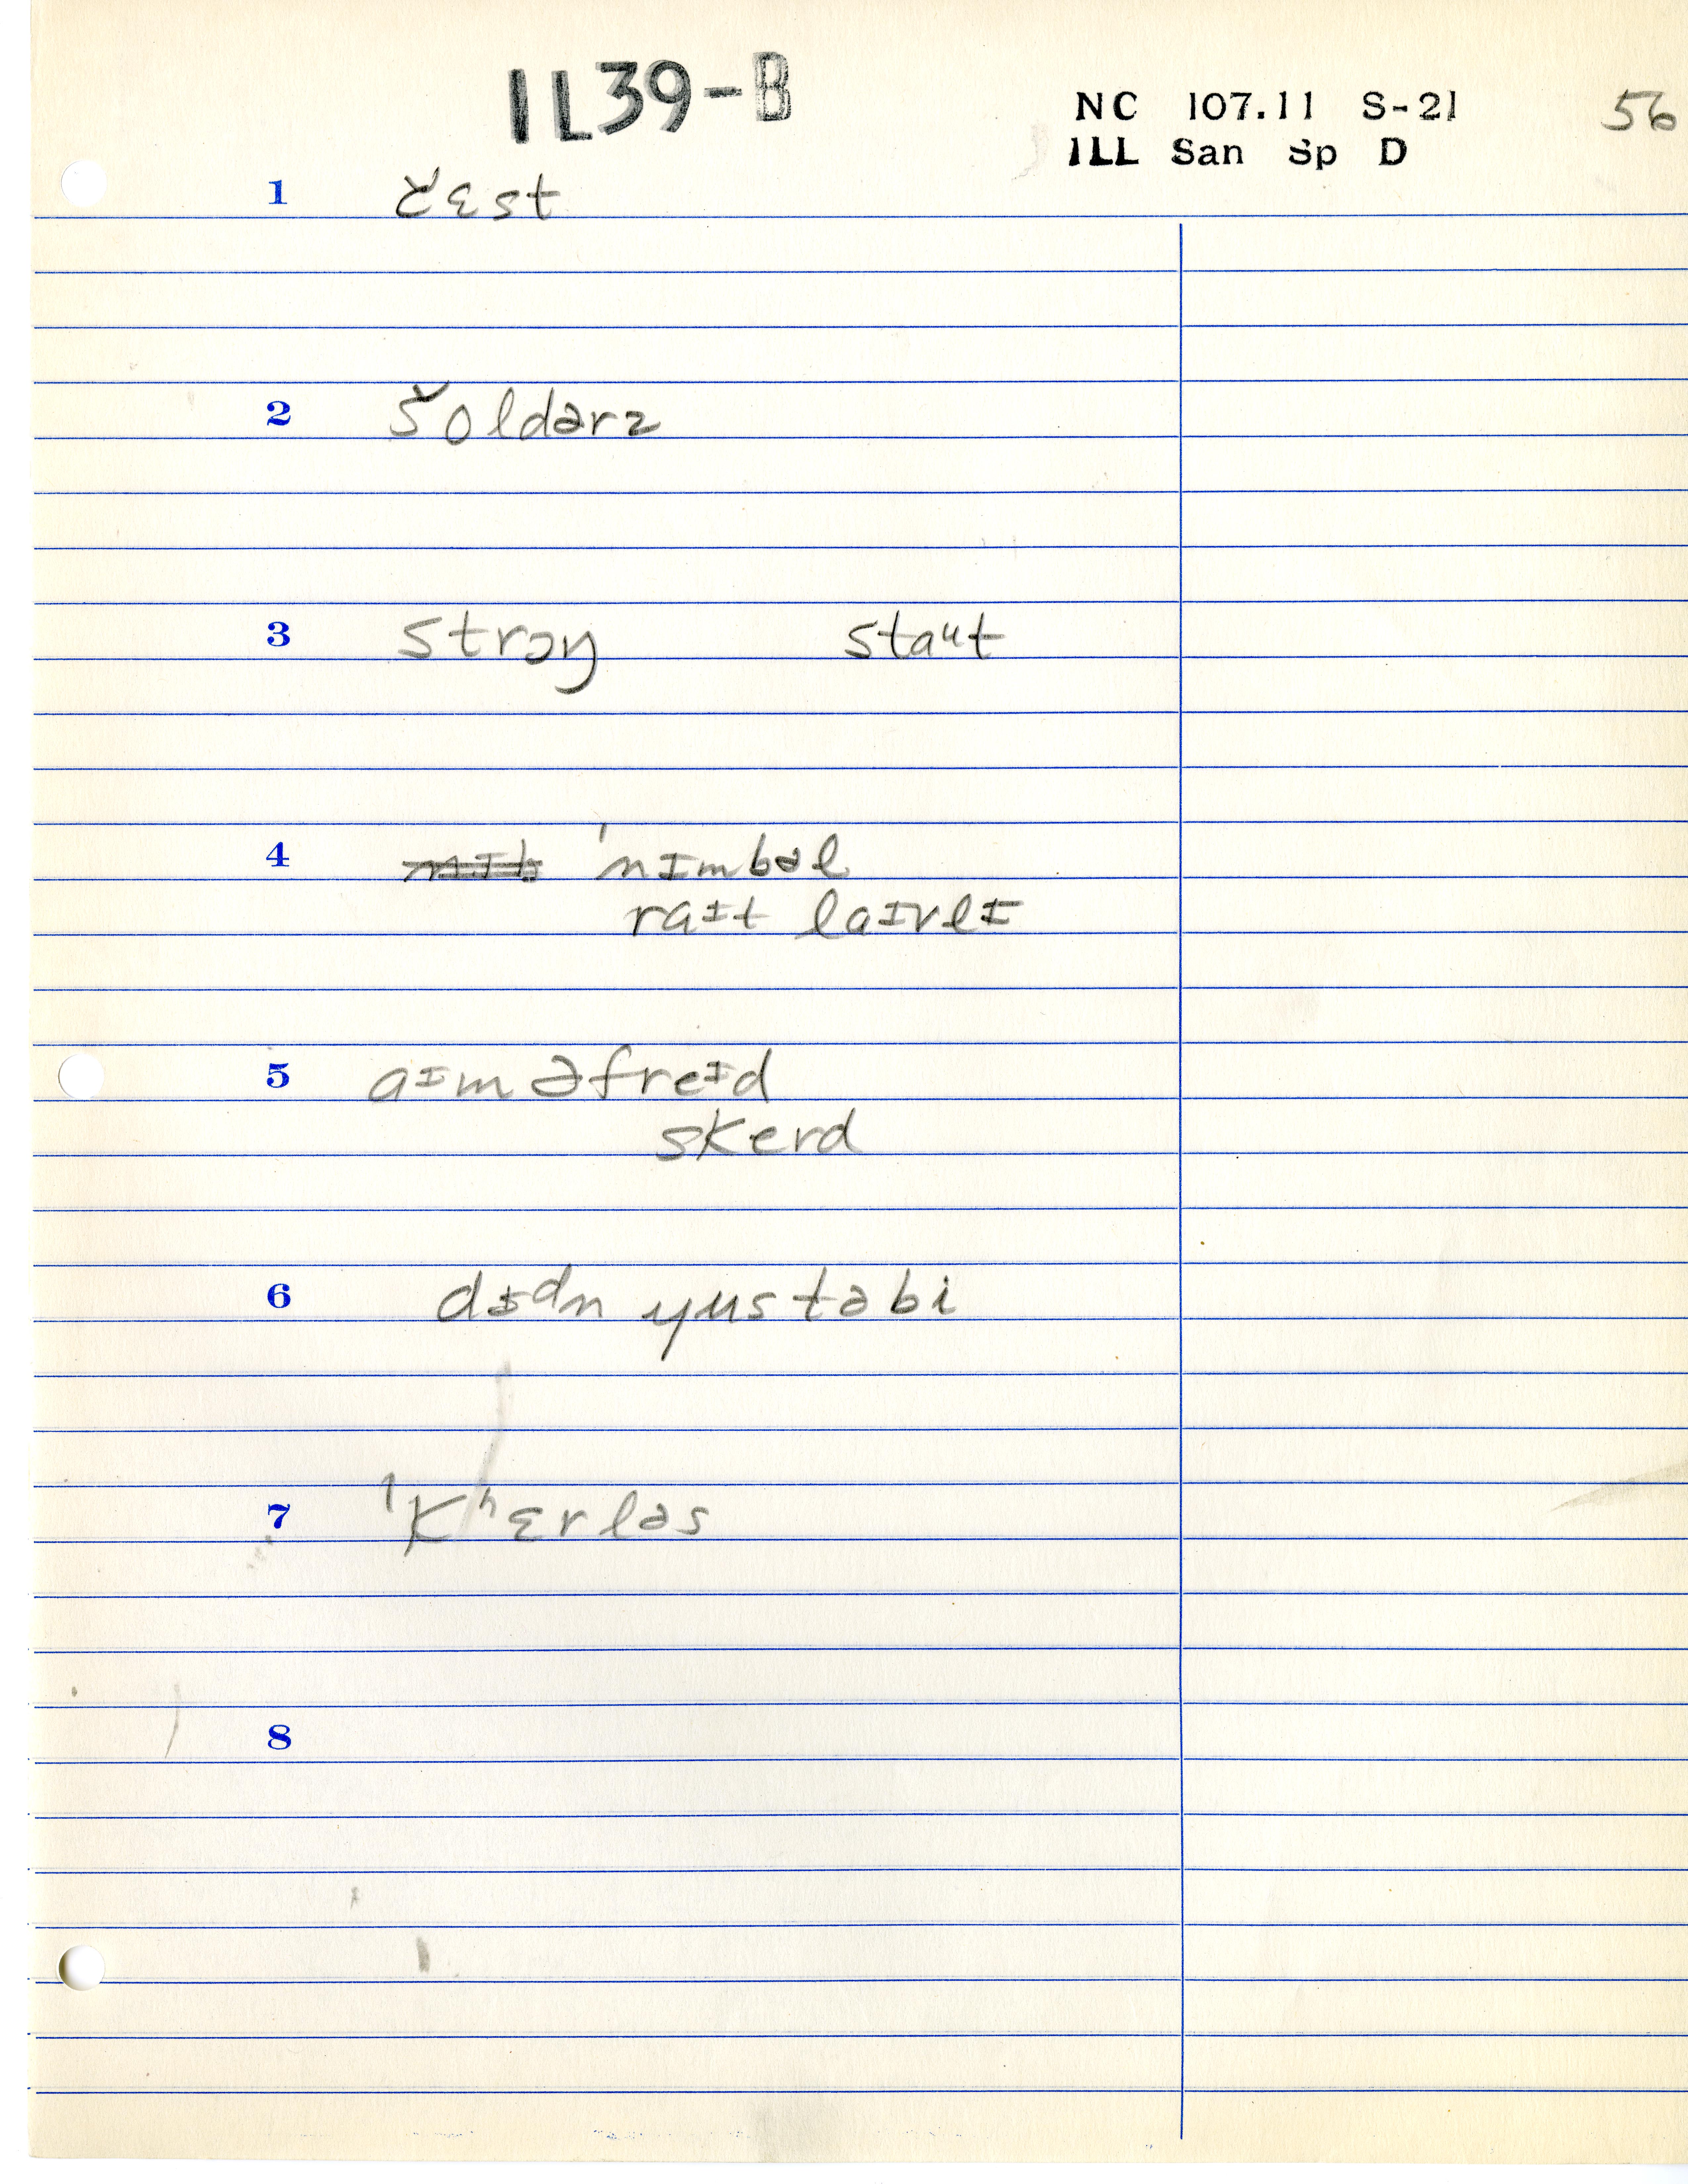 1L39-B
NC 107.11 S-21 56
ILL San Sp D
1 čɛst
2 šoldərz
3 strɔŋ staᵘt
4 ˈnɪmbəl
raɪt laɪvlɪ
5 aɪm əfreɪd
skerd
6 dɪdn yustəbi
7 ˈkʰɛrləs
8